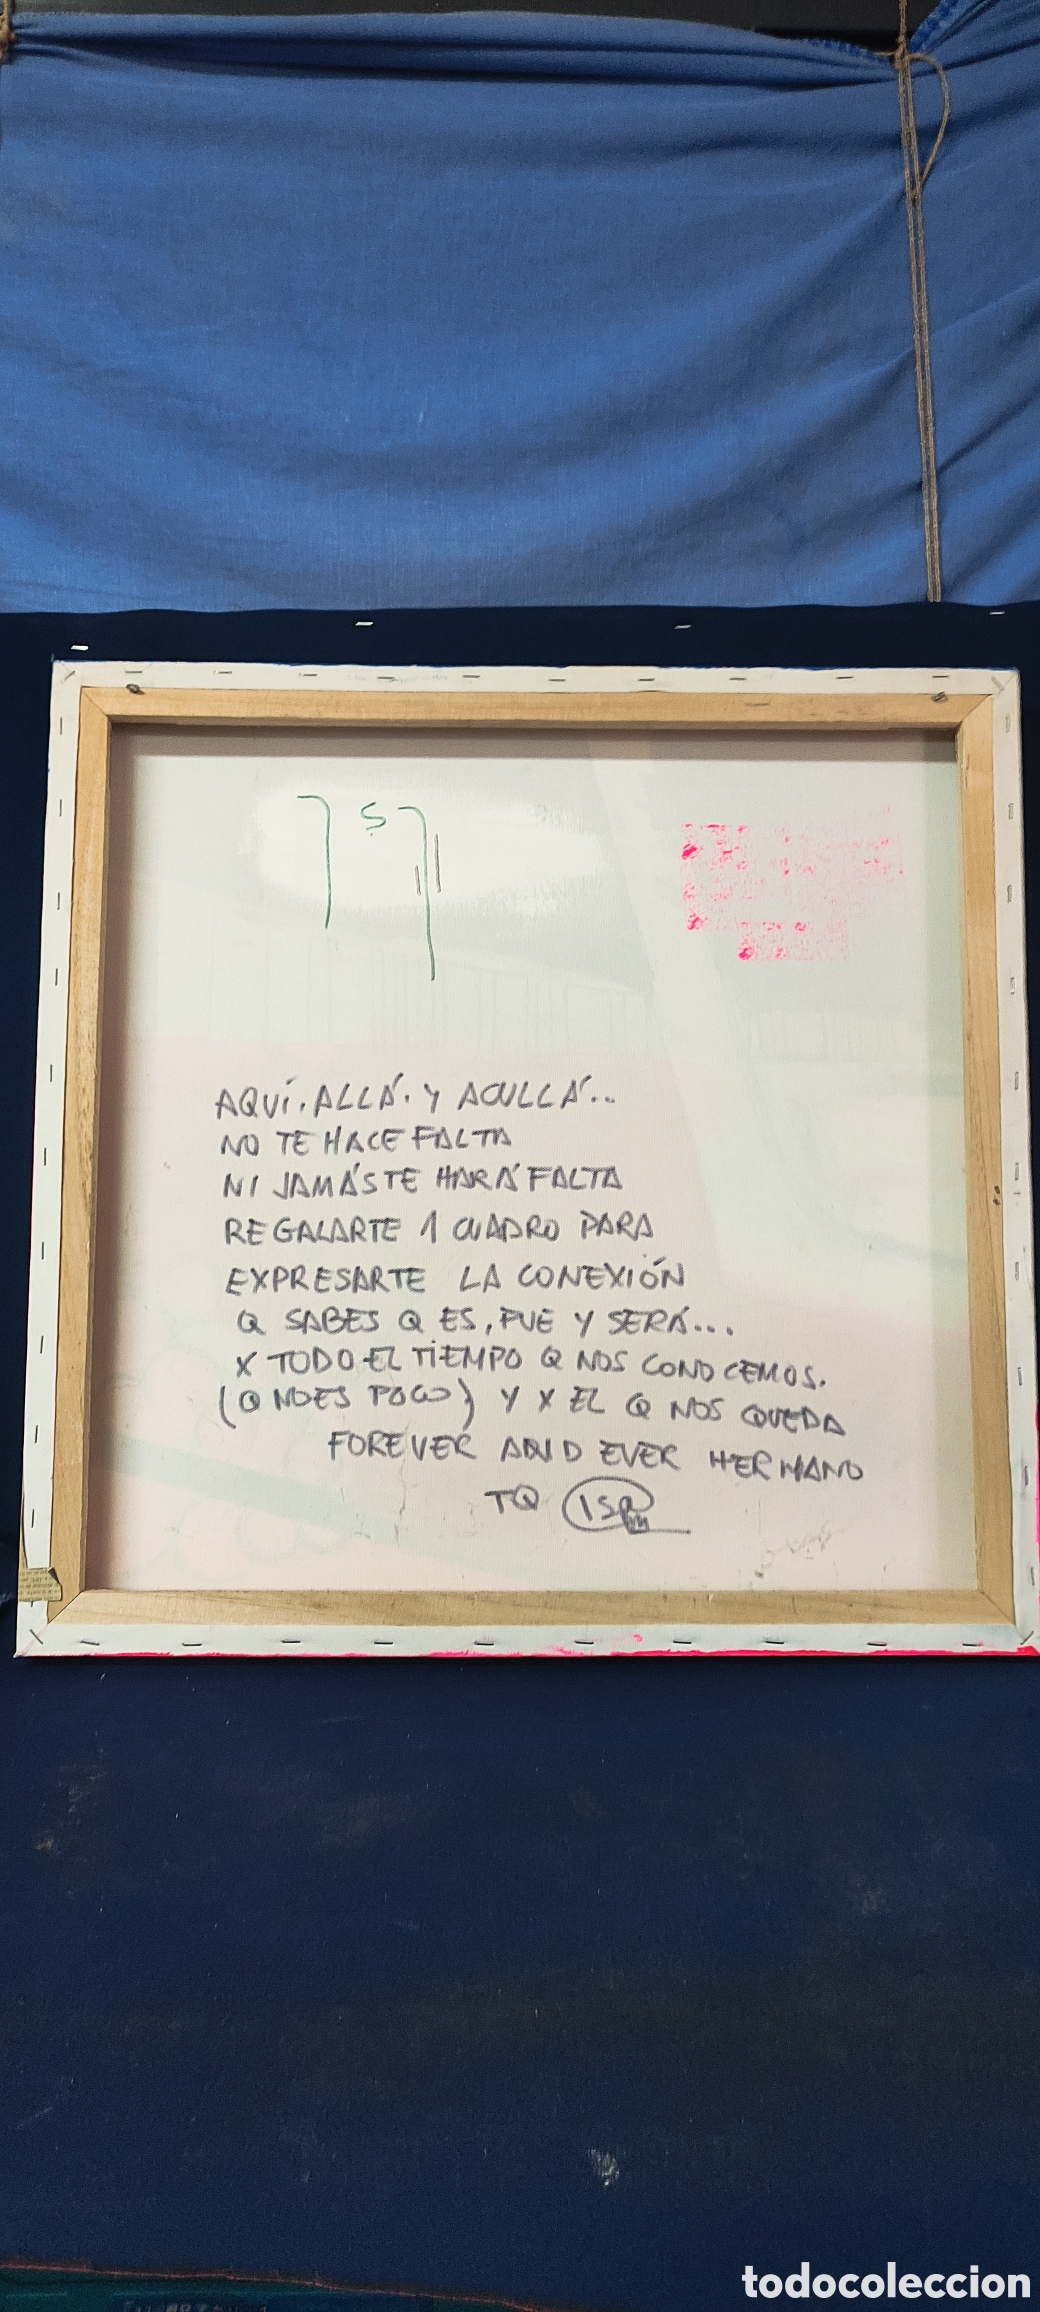 AQUÍ. ALLÁ. Y ACULLÁ...
NO TE HACE FALTA
NI JAMÁS TE HARÁ FALTA
REGALARTE 1 CUADRO PARA
EXPRESARTE LA CONEXIÓN
Q SABES Q ES, FUE Y SERÁ...
X TODO EL TIEMPO Q NOS CONOCEMOS.
(Q NO ES POCO) Y X EL Q NOS QUEDA
FOREVER AND EVER HERMANO
TQ
todocoleccion